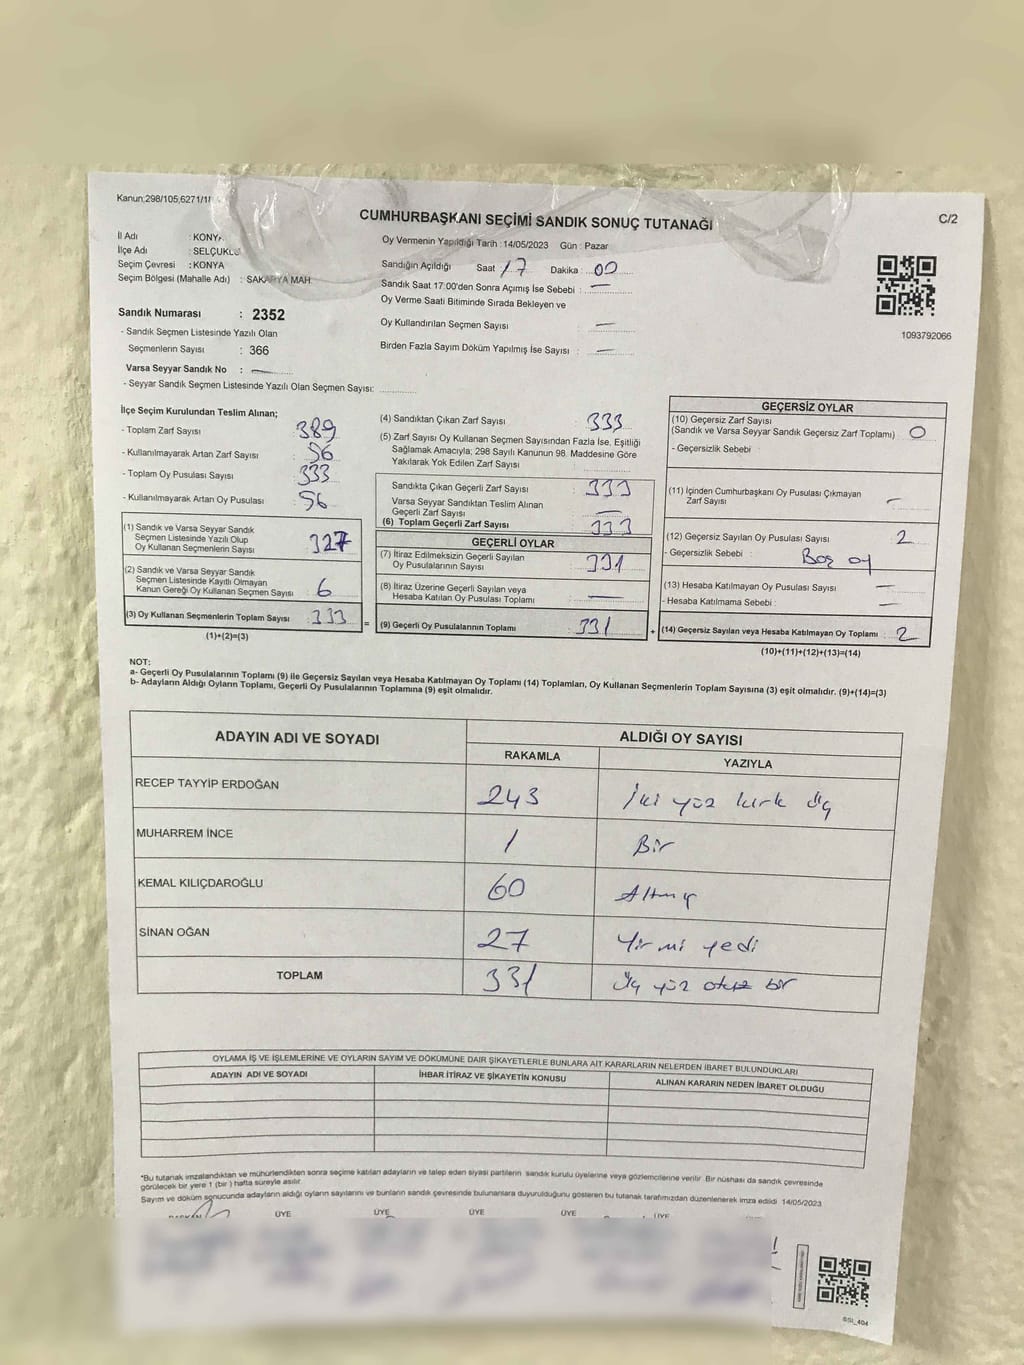 Kanun;298/105,6271/1
CUMHURBAŞKANI SEÇİMİ SANDIK SONUÇ TUTANAĞI
C/2
İl Adı : KONYA
İlçe Adı : SELÇUKLU
Seçim Çevresi : KONYA
Seçim Bölgesi (Mahalle Adı) : SAKARYA MAH.
Oy Vermenin Yapıldığı Tarih : 14/05/2023 Gün : Pazar
Sandığın Açıldığı Saat 17 Dakika : 00
Sandık Saat 17:00'den Sonra Açımış İse Sebebi : —
Oy Verme Saati Bitiminde Sırada Bekleyen ve
Oy Kullandırılan Seçmen Sayısı : —
Birden Fazla Sayım Döküm Yapılmış İse Sayısı : —
1093792066
Sandık Numarası : 2352
- Sandık Seçmen Listesinde Yazılı Olan
Seçmenlerin Sayısı : 366
Varsa Seyyar Sandık No : —
- Seyyar Sandık Seçmen Listesinde Yazılı Olan Seçmen Sayısı:
İlçe Seçim Kurulundan Teslim Alınan;
- Toplam Zarf Sayısı 389
- Kullanılmayarak Artan Zarf Sayısı : 56
- Toplam Oy Pusulası Sayısı 333
- Kullanılmayarak Artan Oy Pusulası : 56
(1) Sandık ve Varsa Seyyar Sandık
Seçmen Listesinde Yazılı Olup
Oy Kullanan Seçmenlerin Sayısı : 327
(2) Sandık ve Varsa Seyyar Sandık
Seçmen Listesinde Kayıtlı Olmayan
Kanun Gereği Oy Kullanan Seçmen Sayısı : 6
(3) Oy Kullanan Seçmenlerin Toplam Sayısı : 333
(1)+(2)=(3)
=
(4) Sandıktan Çıkan Zarf Sayısı : 333
(5) Zarf Sayısı Oy Kullanan Seçmen Sayısından Fazla İse, Eşitliği
Sağlamak Amacıyla; 298 Sayılı Kanunun 98. Maddesine Göre
Yakılarak Yok Edilen Zarf Sayısı :
Sandıkta Çıkan Geçerli Zarf Sayısı : 333
Varsa Seyyar Sandıktan Teslim Alınan
Geçerli Zarf Sayısı : —
(6) Toplam Geçerli Zarf Sayısı : 333
GEÇERLİ OYLAR
(7) İtiraz Edilmeksizin Geçerli Sayılan
Oy Pusulalarının Sayısı : 331
(8) İtiraz Üzerine Geçerli Sayılan veya
Hesaba Katılan Oy Pusulası Toplamı : —
(9) Geçerli Oy Pusulalarının Toplamı : 331
+
GEÇERSİZ OYLAR
(10) Geçersiz Zarf Sayısı
(Sandık ve Varsa Seyyar Sandık Geçersiz Zarf Toplamı) : 0
- Geçersizlik Sebebi :
(11) İçinden Cumhurbaşkanı Oy Pusulası Çıkmayan
Zarf Sayısı : —
(12) Geçersiz Sayılan Oy Pusulası Sayısı : 2
- Geçersizlik Sebebi : Boş oy
(13) Hesaba Katılmayan Oy Pusulası Sayısı : —
- Hesaba Katılmama Sebebi : —
(14) Geçersiz Sayılan veya Hesaba Katılmayan Oy Toplamı : 2
(10)+(11)+(12)+(13)=(14)
NOT:
a- Geçerli Oy Pusulalarının Toplamı (9) ile Geçersiz Sayılan veya Hesaba Katılmayan Oy Toplamı (14) Toplamları, Oy Kullanan Seçmenlerin Toplam Sayısına (3) eşit olmalıdır. (9)+(14)=(3)
b- Adayların Aldığı Oyların Toplamı, Geçerli Oy Pusulalarının Toplamına (9) eşit olmalıdır.
ADAYIN ADI VE SOYADI
ALDIĞI OY SAYISI
RAKAMLA YAZIYLA
RECEP TAYYİP ERDOĞAN 243 İki yüz kırk üç
MUHARREM İNCE 1 Bir
KEMAL KILIÇDAROĞLU 60 Altmış
SİNAN OĞAN 27 Yirmi yedi
TOPLAM 331 Üç yüz otuz bir
OYLAMA İŞ VE İŞLEMLERİNE VE OYLARIN SAYIM VE DÖKÜMÜNE DAİR ŞİKAYETLERLE BUNLARA AİT KARARLARIN NELERDEN İBARET BULUNDUKLARI
ADAYIN ADI VE SOYADI İHBAR İTİRAZ VE ŞİKAYETİN KONUSU ALINAN KARARIN NEDEN İBARET OLDUĞU
*Bu tutanak imzalandıktan ve mühürlendikten sonra seçime katılan adayların ve talep eden siyasi partilerin sandık kurulu üyelerine veya gözlemcilerine verilir. Bir nüshası da sandık çevresinde
görülecek bir yere 1 (bir ) hafta süreyle asılır.
Sayım ve döküm sonucunda adayların aldığı oyların sayılarını ve bunların sandık çevresinde bulunanlara duyurulduğunu gösteren bu tutanak tarafımızdan düzenlenerek imza edildi. 14/05/2023
BAŞKAN ÜYE ÜYE ÜYE ÜYE ÜYE
SSI_404